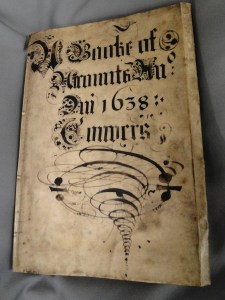 A Booke of
Accounts An:º
Dni 1638:
Cowpers